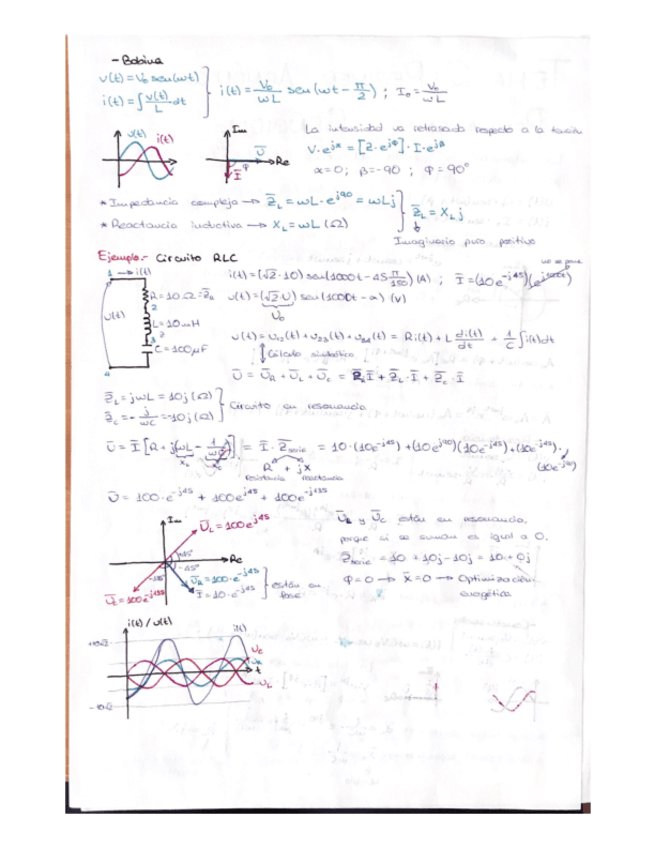 - Bobina
v(t) = V₀ sen(ωt)
i(t) = ∫ v(t)/L dt
i(t) = V₀/ωL sen(ωt - π/2) ; I₀ = V₀/ωL
v(t) i(t)
Im
Ū
φ
Re
Ī
La intensidad va retrasada respecto a la tensión
V·e^jα = [Z·e^jφ]·I·e^jβ
α=0; β=-90; φ=90°
* Impedancia compleja → Z̄_L = ωL·e^j90 = ωLj
* Reactancia inductiva → X_L = ωL (Ω)
Z̄_L = X_L j
Imaginario puro positivo
Ejemplo.- Circuito RLC
1 → i(t)
u(t)
R = 10 Ω = Z̄_R
2
L = 10 mH
3
C = 100 μF
4
i(t) = (√2·10) sen(1000t - 45 π/180) (A) ; Ī = (10e^-j45)(e^j1000t)
no se pone
u(t) = (√2·U) sen(1000t - α) (V)
U₀
u(t) = u₁₂(t) + u₂₃(t) + u₃₄(t) = Ri(t) + L di(t)/dt + 1/C ∫i(t)dt
↕ Cálculo simbólico
Ū = Ū_R + Ū_L + Ū_C = Z̄_R Ī + Z̄_L·Ī + Z̄_C·Ī
Z̄_L = jωL = 10j (Ω)
Z̄_C = -j/ωC = -10j (Ω)
Circuito en resonancia
Ū = Ī [R + j(ωL - 1/ωC)] = Ī·Z̄_serie = 10·(10e^-j45) + (10e^j90)(10e^-j45) + (10e^-j45)·(10e^-j90)
X_L X_C
R + jX
Resistencia reactancia
Ū = 100·e^-j45 + 100e^j45 + 100e^-j135
Im
Ū_L = 100e^j45
45°
Re
-45°
-135
Ū_R = 100·e^-j45
Ī = 10·e^-j45
están en fase
Ū_C = 100e^-j135
y Ū_C están en resonancia,
porque si se suman es igual a 0.
Z̄_serie = 10 + 10j - 10j = 10 + 0j
φ=0 → X̄=0 → Optimización
energética
i(t) / u(t)
+10√2
i(t)
u_C
u_R
t
u_L
-10√2